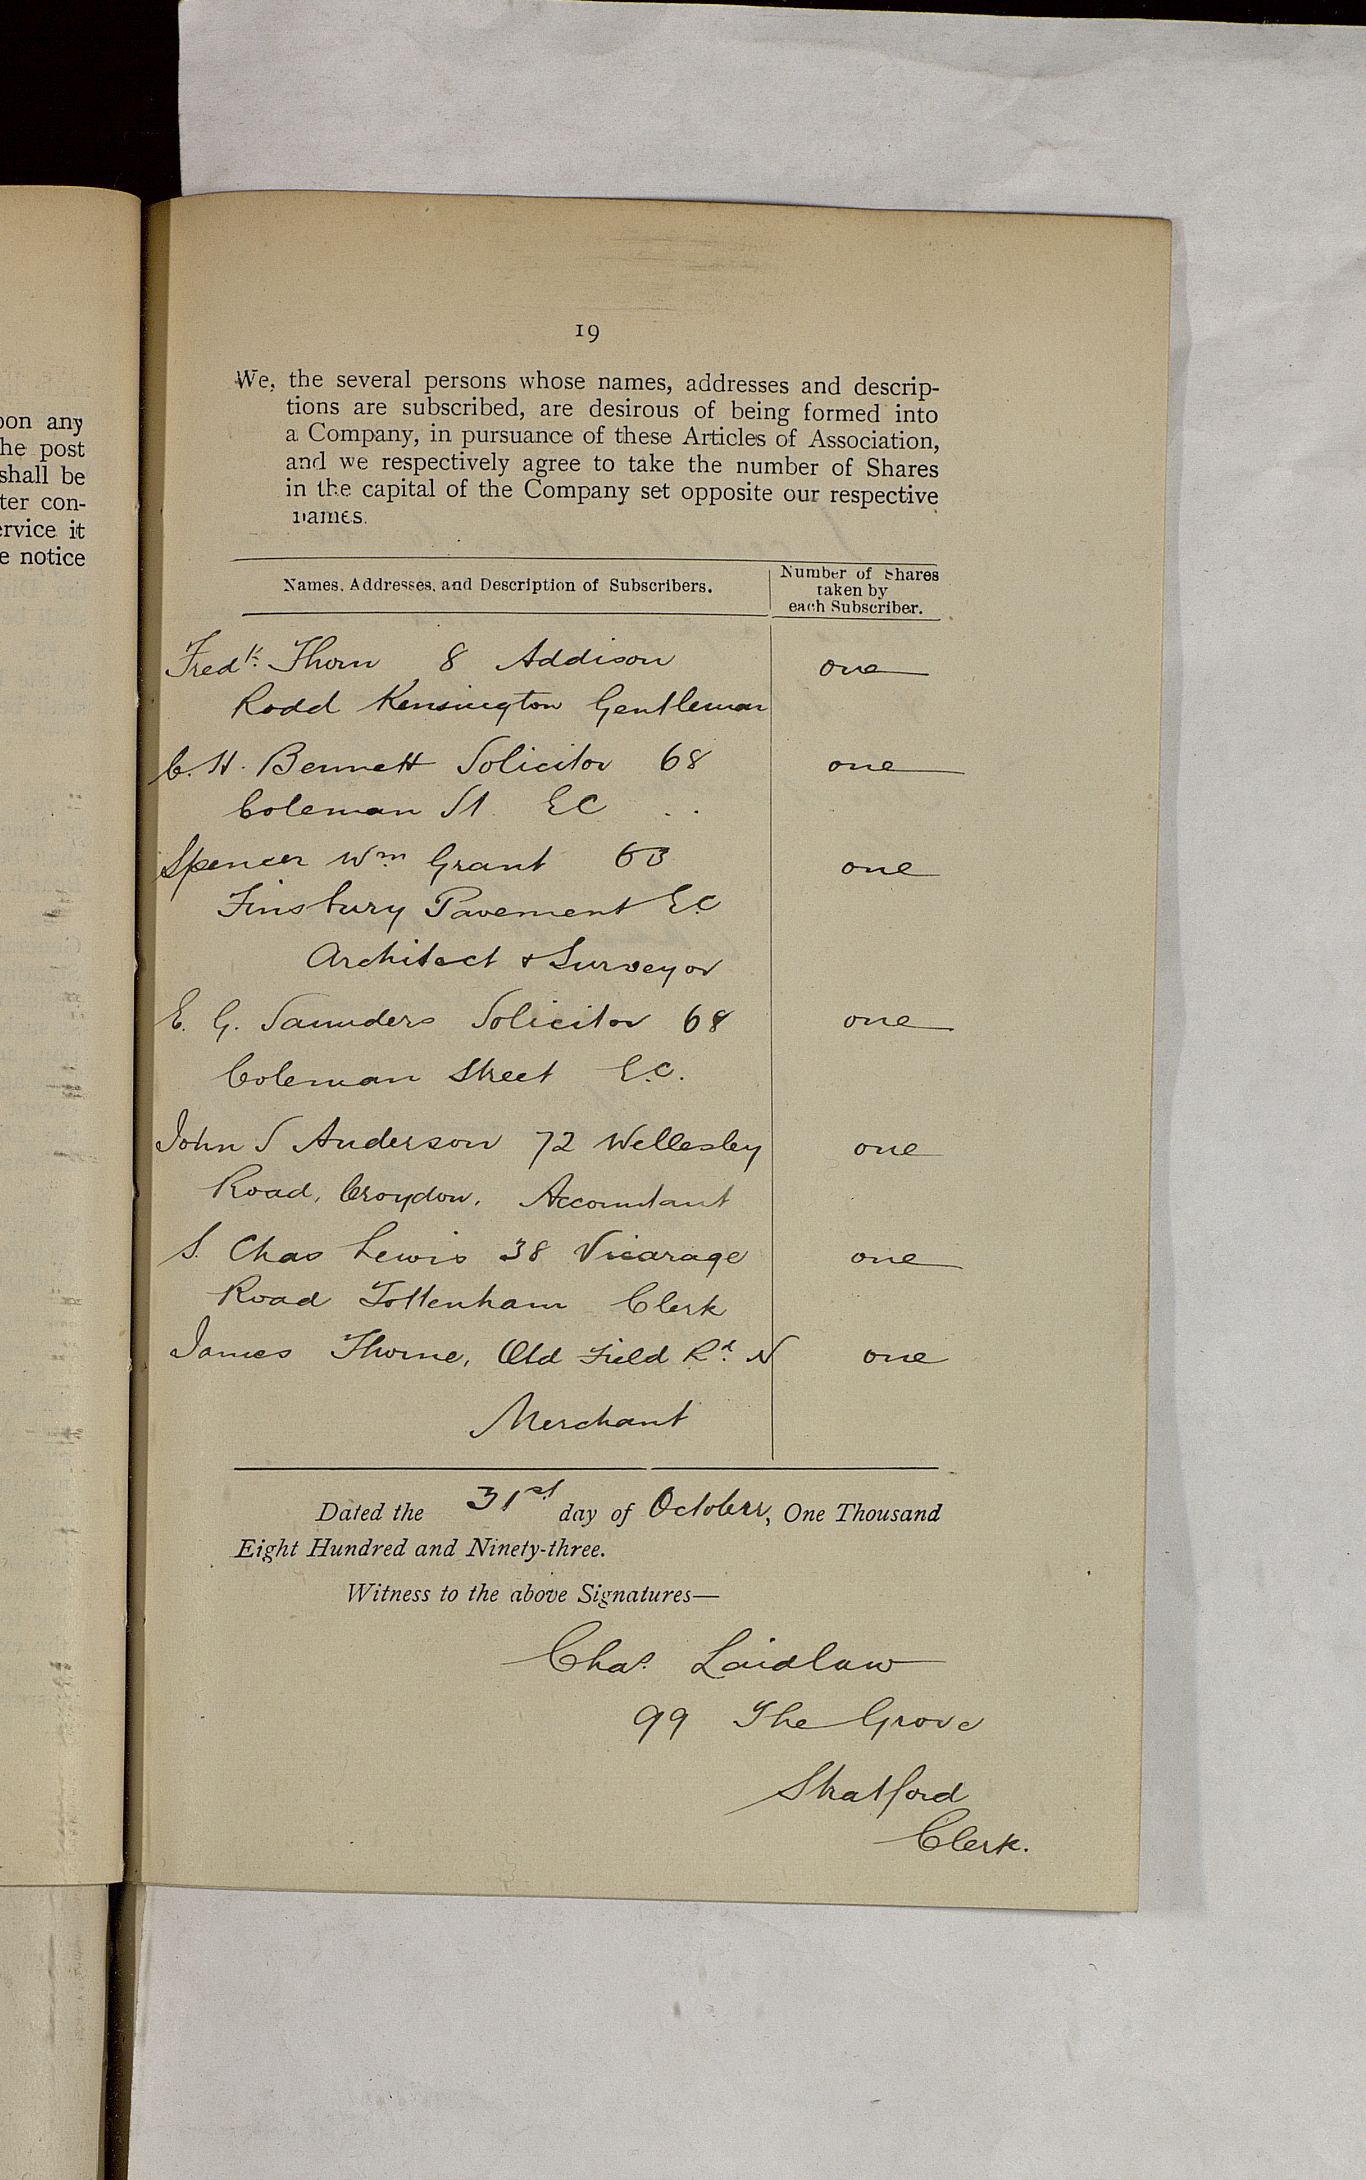 pon any
he post
shall be
ter con-
ervice it
e notice
19
We, the several persons whose names, addresses and descrip-
tions are subscribed, are desirous of being formed into
a Company, in pursuance of these Articles of Association,
and we respectively agree to take the number of Shares
in the capital of the Company set opposite our respective
names.
Names, Addresses, and Description of Subscribers.
Number of Shares
taken by
each Subscriber.
Fredk. Thorn 8 Addison one
Road Kensington Gentleman
C. H. Bennett Solicitor 68 one
Coleman St. EC
Spencer Wm Grant 63 one
Finsbury Pavement E.C
Architect & Surveyor
E. G. Saunders Solicitor 68 one
Coleman Street E.C.
John S Anderson 72 Wellesley one
Road, Croydon, Accountant
S. Chas Lewis 38 Vicarage one
Road Tottenham Clerk
James Thorne, Old Field Rd. N one
Merchant
Dated the 31st day of October, One Thousand
Eight Hundred and Ninety-three.
Witness to the above Signatures—
Chas. Laidlaw
99 The Grove
Stratford
Clerk.